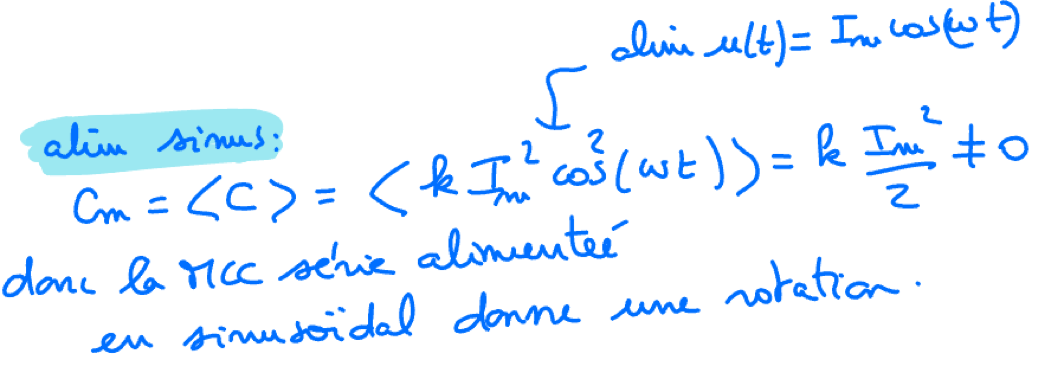 alim u(t) = Im cos(ωt)
alim sinus:
Cm = <C> = <k Im² cos²(ωt)> = k Im²/2 ≠ 0
donc la MCC série alimenteé
en sinusoïdal donne une rotation.